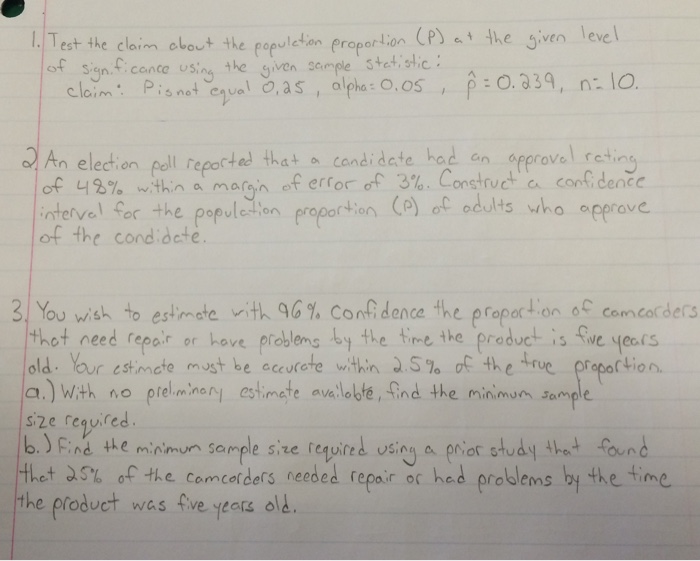 1. Test the claim about the population proportion (P) at the given level
of significance using the given sample statistic:
claim: P is not equal 0.25, alpha = 0.05, p̂ = 0.239, n = 10.
2. An election poll reported that a candidate had an approval rating
of 48% within a margin of error of 3%. Construct a confidence
interval for the population proportion (P) of adults who approve
of the candidate.
3. You wish to estimate with 96% confidence the proportion of camcorders
that need repair or have problems by the time the product is five years
old. Your estimate must be accurate within 2.5% of the true proportion.
a.) With no preliminary estimate available, find the minimum sample
size required.
b.) Find the minimum sample size required using a prior study that found
that 25% of the camcorders needed repair or had problems by the time
the product was five years old.